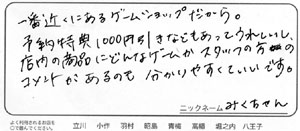 一番近くにあるゲームショップだから。
予約特典1000円引きなどもあってうれしいし、
店内の商品にどんなゲームかスタッフの方の
コメントがあるのも分かりやすくていいです。
ニックネーム みくちゃん
よく利用されるお店を
○で囲んでください。
立川 小作 羽村 昭島 青梅 高幡 堀之内 八王子